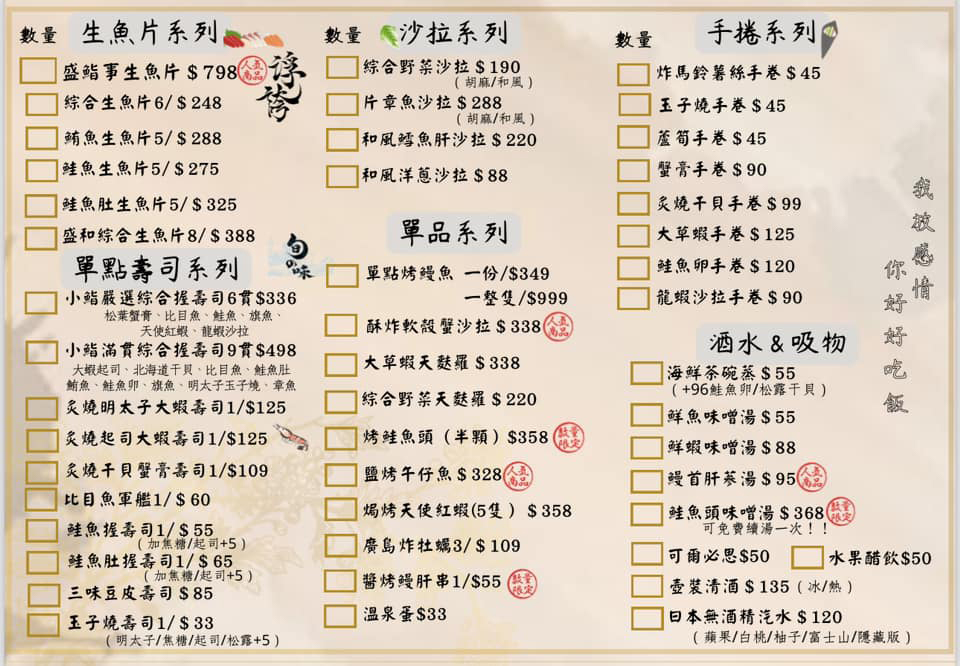 數量 生魚片系列
盛鮨事生魚片 $798 人氣商品
浮誇
綜合生魚片6/$248
鮪魚生魚片5/$288
鮭魚生魚片5/$275
鮭魚肚生魚片5/$325
盛和綜合生魚片8/$388
旬の味
單點壽司系列
小鮨嚴選綜合握壽司6貫$336
松葉蟹膏、比目魚、鮭魚、旗魚、
天使紅蝦、龍蝦沙拉
小鮨滿貫綜合握壽司9貫$498
大蝦起司、北海道干貝、比目魚、鮭魚肚
鮪魚、鮭魚卵、旗魚、明太子玉子燒、章魚
炙燒明太子大蝦壽司1/$125
炙燒起司大蝦壽司1/$125
炙燒干貝蟹膏壽司1/$109
比目魚軍艦1/$60
鮭魚握壽司1/$55
(加焦糖/起司+5)
鮭魚肚握壽司1/$65
(加焦糖/起司+5)
三味豆皮壽司$85
玉子燒壽司1/$33
(明太子/焦糖/起司/松露+5)
數量 沙拉系列
綜合野菜沙拉$190
(胡麻/和風)
片章魚沙拉$288
(胡麻/和風)
和風鱈魚肝沙拉$220
和風洋蔥沙拉$88
單品系列
單點烤鰻魚 一份/$349
一整隻/$999
酥炸軟殼蟹沙拉$338 人氣商品
大草蝦天麩羅$338
綜合野菜天麩羅$220
烤鮭魚頭(半顆)$358 數量限定
鹽烤午仔魚$328 人氣商品
焗烤天使紅蝦(5隻)$358
廣島炸牡蠣3/$109
醬烤鰻肝串1/$55 數量限定
溫泉蛋$33
數量 手捲系列
炸馬鈴薯絲手卷$45
玉子燒手卷$45
蘆筍手卷$45
蟹膏手卷$90
炙燒干貝手卷$99
大草蝦手卷$125
鮭魚卵手卷$120
龍蝦沙拉手卷$90
酒水&吸物
海鮮茶碗蒸$55
(+96鮭魚卵/松露干貝)
鮮魚味噌湯$55
鮮蝦味噌湯$88
鰻首肝蔘湯$95 人氣商品
鮭魚頭味噌湯$368 數量限定
可免費續湯一次!!
可爾必思$50 水果醋飲$50
壺裝清酒$135(冰/熱)
日本無酒精汽水$120
(蘋果/白桃/柚子/富士山/隱藏版)
我披感情
你好好吃飯